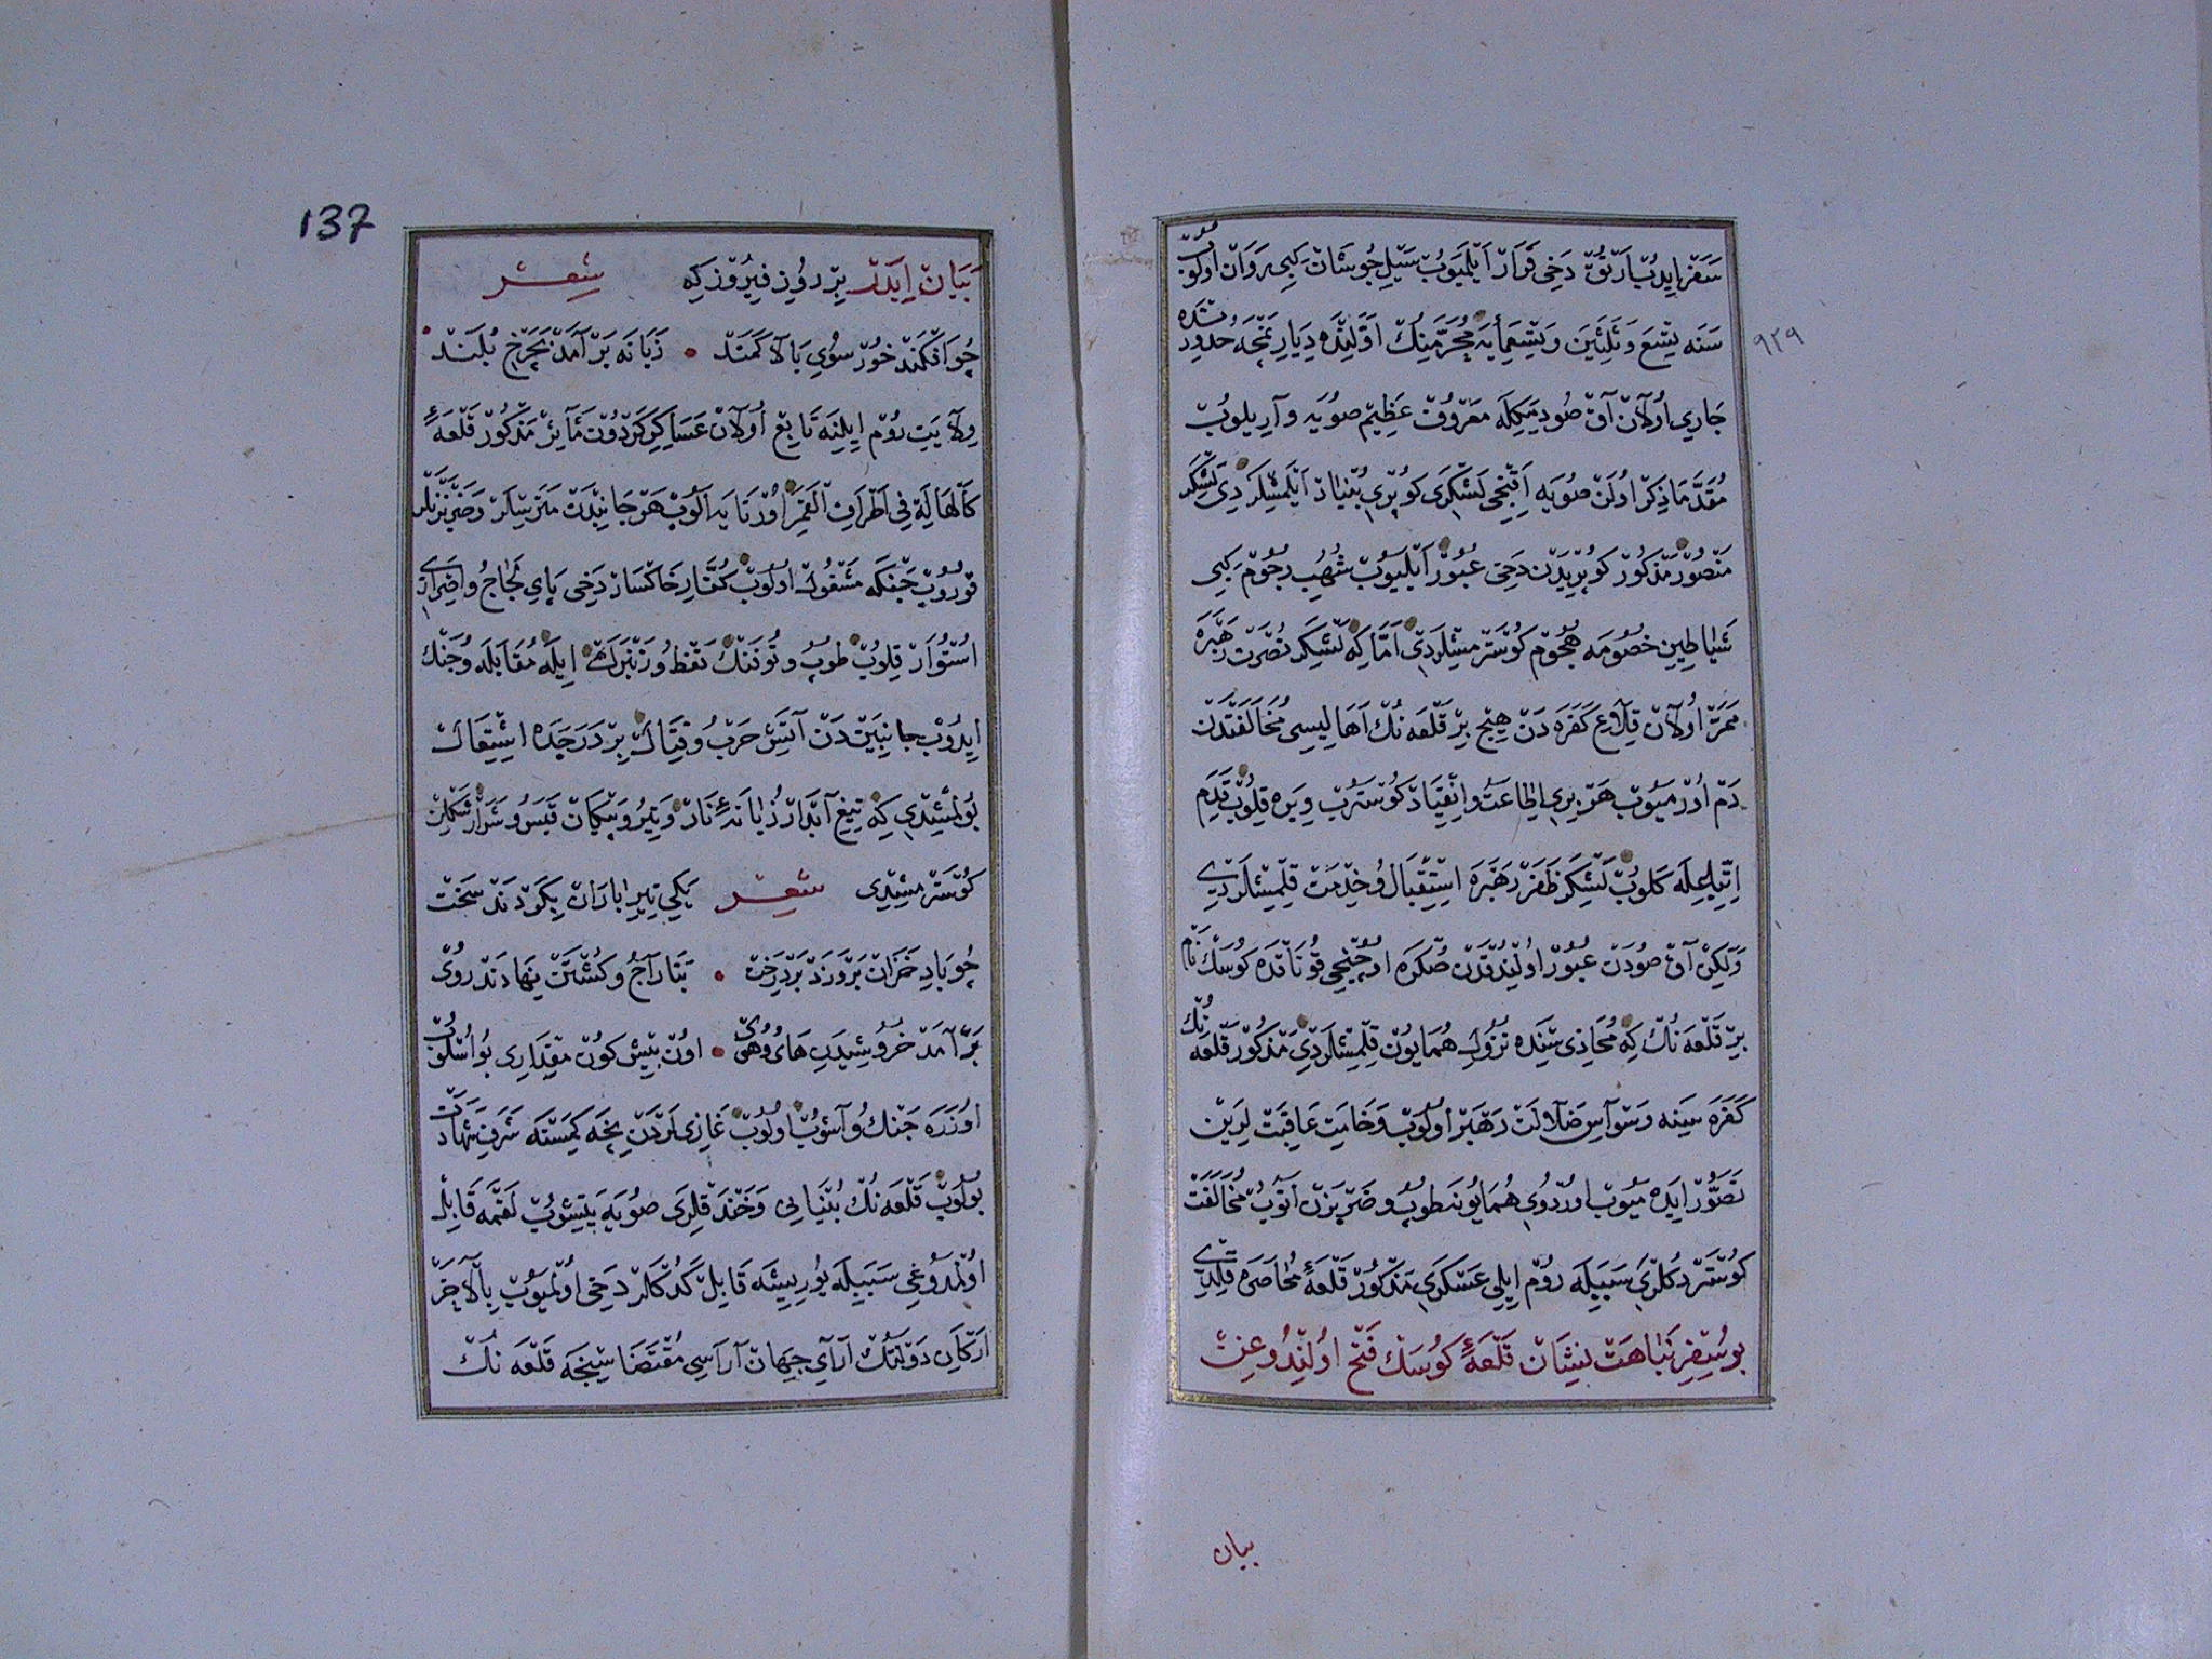 سَفَر ايدُب اَرتُق دَخى قَرار اَيلَمَيوُب سَيلِ جُوشان كبى رَوان اولوُب
سَنَه تِسع وَثَلثين وَتِسعمأيه مُحَرَّمِنُك اَوَّلِنده دِيارِ نمچه حُدودِنده
٩٣٩
جارى اولان آق صُو ديمكله مَعروُف عَظيم صُويه وآريلوُب
مُقَدَّمَا ذِكر اولن صُويه اَقنجى لَشكَرى كوُپرى بُنياد اَيلَمِشلَردى لَشكَر
مَنصوُر مَذكوُر كوُپريدن دَخى عُبوُر اَيلَيوُب شُهُبِ رجُوم كبى
شَياطينِ خصُومه هُجوُم كوُستَرمِشلَردى اَمّا كه لَشكَر نصُرَت رَهبَره
مَمَرّ اولان قِلاعِ كَفَره دَن هيچ بِر قَلعَه نُك اَهاليسى مُخالَفَتدَن
دَم اُرمَيوُب هَر برى اِطاعَت واِنقِياد كوُستَرُب ويره قِلوُب قَدَم
اِتّباعله كلوُب لَشكَر ظَفَر رَهبَره استِقبال وُخِدمَت قِلمِشلَردى
وَلٰكِن آق صُودَن عُبوُر اولُندُقدَن صُكره اوچُنجى قوُناقده كوُسَك نام
بر قَلعَه نُك كه مُحاذى سِنده نزُول هُمايوُن قِلمِشلَردى مَذكوُر قَلعَه نُك
كَفَره سينه وَسواسِ ضَلالَت رَهبَر اولوُب وَخامَتِ عاقِبَت لَرين
تَصَوُّر ايده ميوُب اوردوُى هُمايوُنه طوُپ وضَربزَن اَتوُب مُخالَفَت
كوُستَردكلَرى سَبَبيله روُم ايلى عَسكَرى مَذكوُر قَلعَهٔ مُحاصَره قِلدى
بو سَفَرِ نَباهَت نِشان قَلعَهٔ كوُسَك فَتح اولُندوُغِن
بيان
137
بَيان ايدَر بِر روُزِ فيروُزكِه شعر
چو اَفكَند خُور سوُى بالا كَمَند • زَبانَه بَر آمَد بچَرخ بُلَند •
ولايَتِ روُم ايلِنَه تابِع اولان عَساكِرِ كَردوُن مَآثِر مَذكوُر قَلعَهٔ
كَالهالَةِ فى اَطرافِ القَمَر اوُرتايه آلوُب هَر جانِبدَن مَترسلَر وَضَربزَنلَر
قوُروُب جَنكه مَشغوُل اولوُب كُفّارِ خاكسار دَخى پاىِ لَجاج واِصرارى
اُستُوار قِلوُب طوُپ وتوُفَنك نَفط وُزَنبَرَك ايلَه مُقابَله وُجَنك
ايدوُب جانِبَيندَن آتَش حَرب وُقِتال بِر دَرَجَده اِشتِعال
بُولمِشدى كِه تيغِ آبدار زَبانَهٔ نار وَتير وُپيكان قَبَس وُشَرار شَكلِن
كوُستَرمِشدى شعر يكى تير باران بكَردَند سَخت
چو بادِ خَزان بَر وَزَد بَر دِرَخت • بَتاراج وكُشتَن نهادَند روُى
بَر آمَد خُروُشيدَن هاى وُهوى • اون بِش كوُن مقدارى بو اُسلوُب
اوُزَره جَنك وُآشوُب اولوُب غازيلَردَن نيچه كمسنه شَرَف شَهادَت
بُولوُب قَلعَه نُك بُنيانى وَخَندَقلرى صُويه يَتِشوُب لَغمَه قابِل
اولمدوُغى سَبَبيله يوُريِيشَه قابِل كَدُكلر دَخى اولميوُب بِالآخِر
اَركانِ دَولَتُك آراىِ جِهان آراسى مُقتَضاسِنجَه قَلعَه نُك